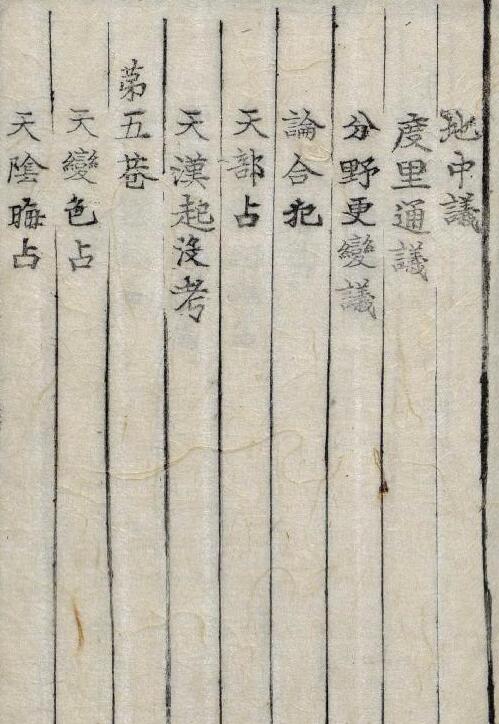 地中議
度里通議
分野更變議
論合犯
天部占
天漢起沒考
苐五卷
天變色占
天陰晦占